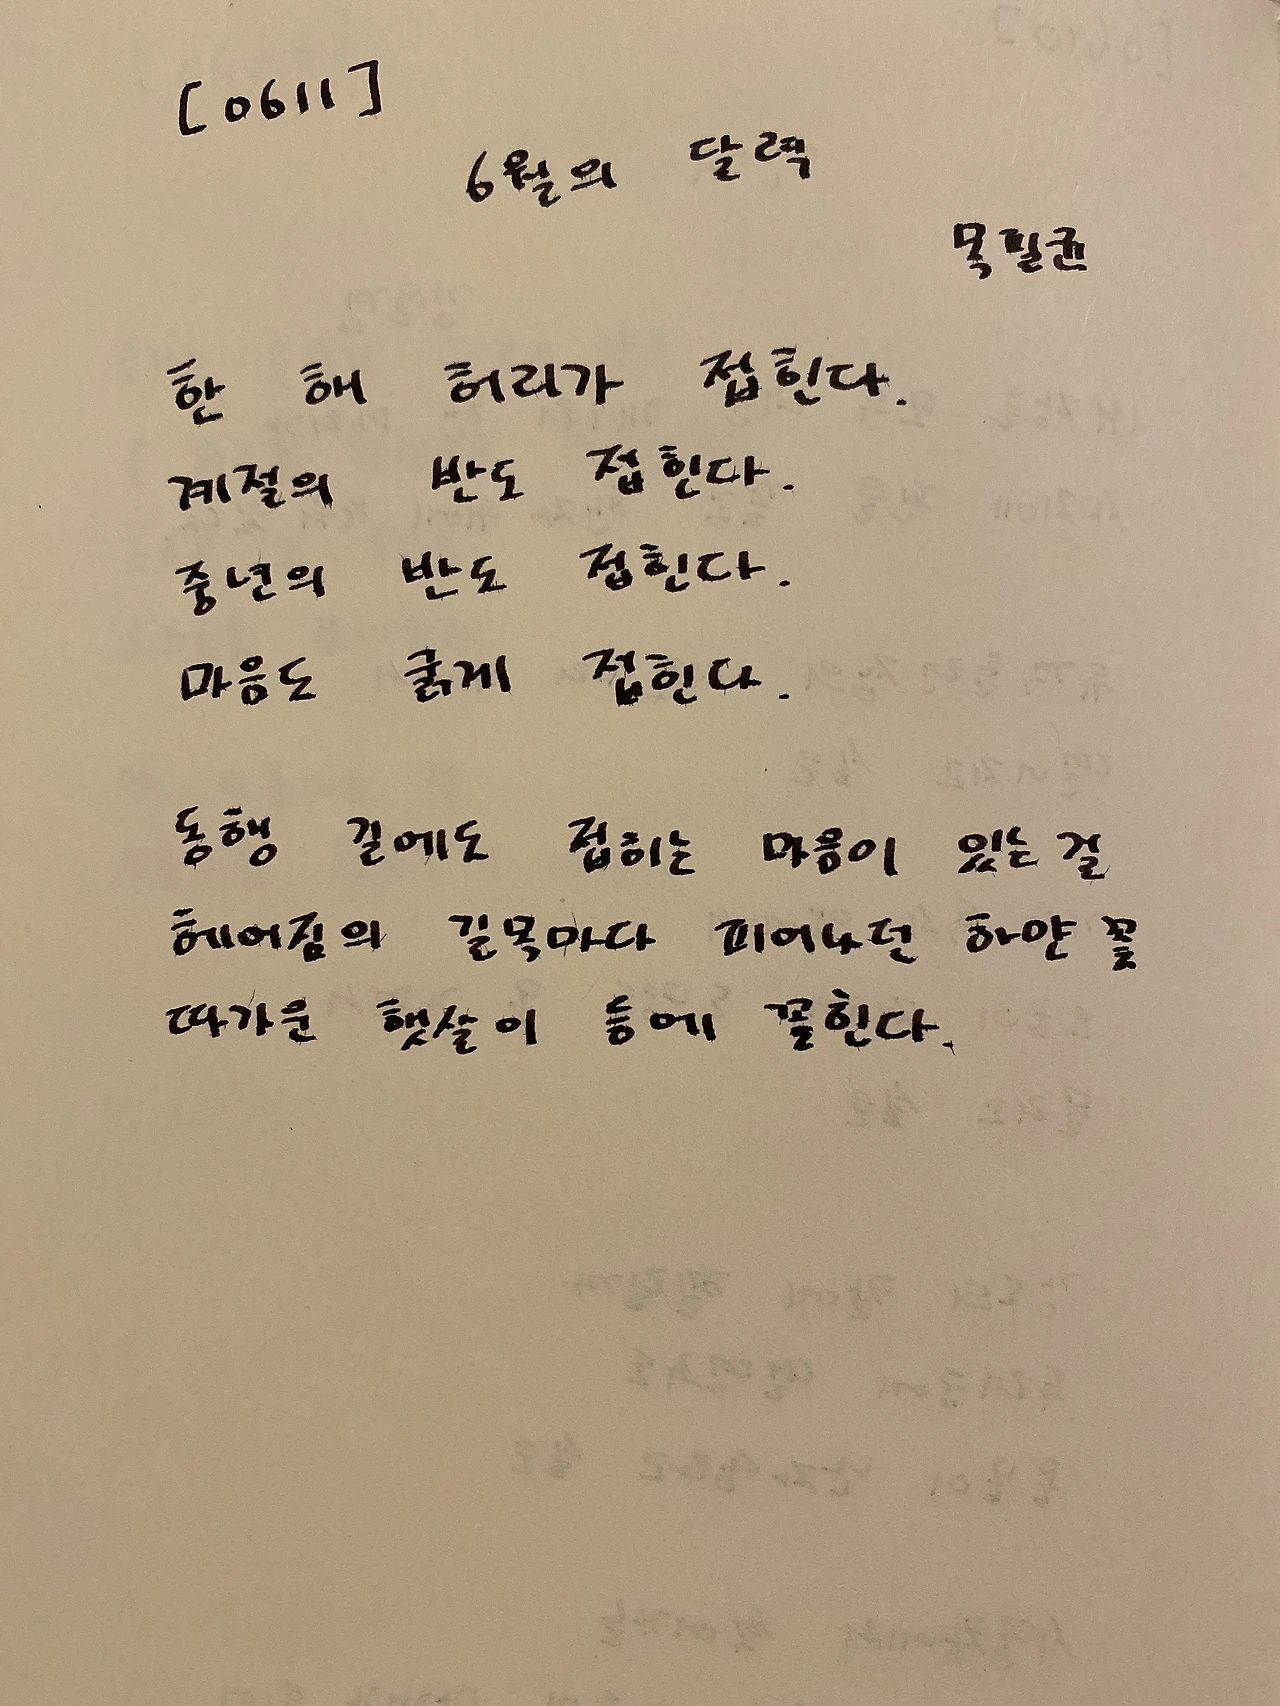 [0611]
6월의 달력
목필균
한 해 허리가 접힌다.
계절의 반도 접힌다.
중년의 반도 접힌다.
마음도 굵게 접힌다.
동행 길에도 접히는 마음이 있는 걸
헤어짐의 길목마다 피어나던 하얀 꽃
따가운 햇살이 등에 꽂힌다.